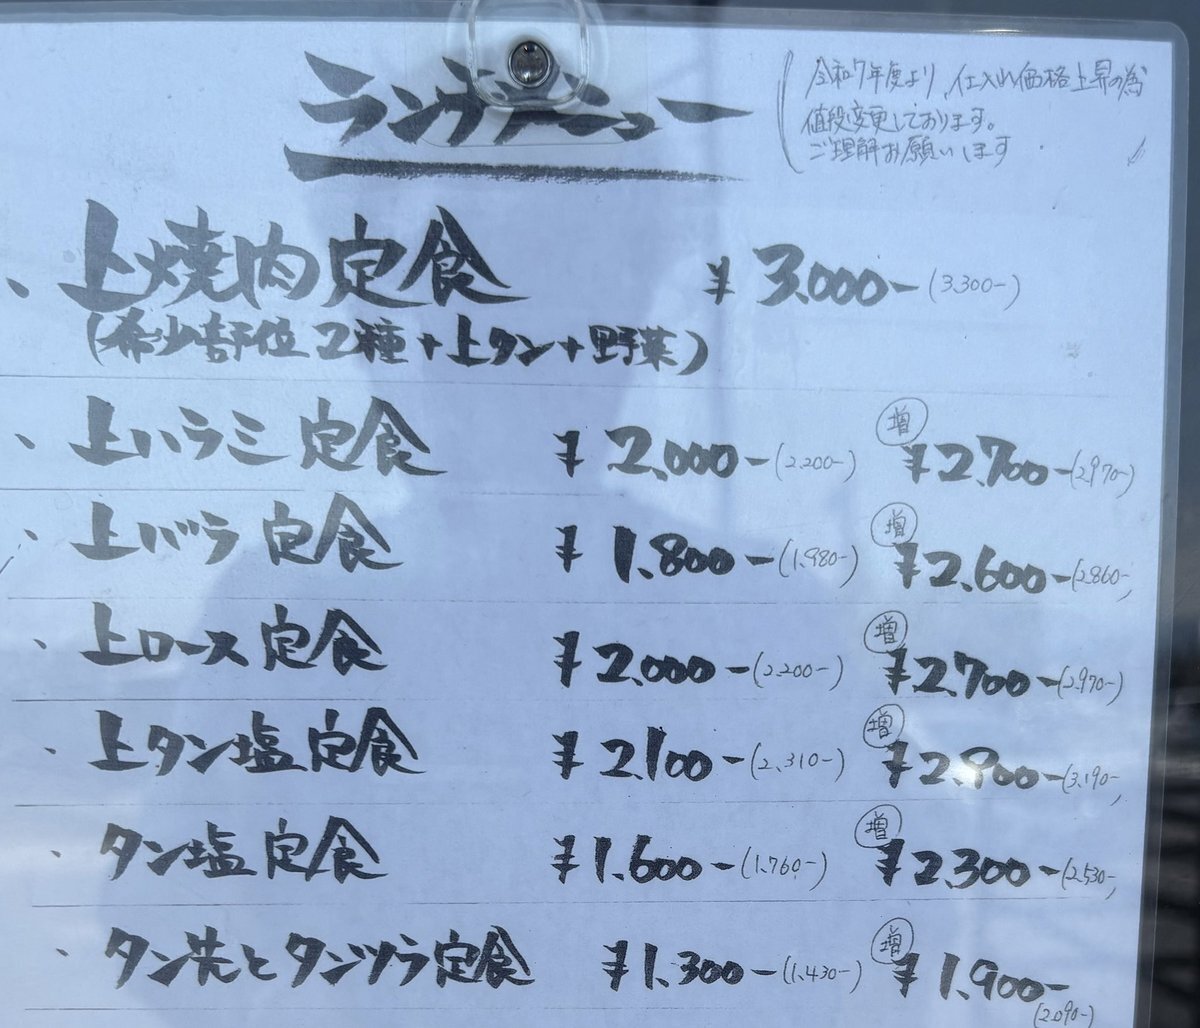 ランチメニュー
(令和7年度より、仕入れ価格上昇の為
値段変更しております。
ご理解お願いします
、上焼肉定食 ¥3.000-(3.300-)
(希少部位2種+上タン+野菜)
、上ハラミ定食 ¥2.000-(2.200-) 増 ¥2.700-(2.970-)
、上バラ定食 ¥1.800-(1.980-) 増 ¥2.600-(2.860-
、上ロース定食 ¥2.000-(2.200-) 増 ¥2.700-(2.970-)
、上タン塩定食 ¥2.100-(2.310-) 増 ¥2.900-(3.190-
、タン塩定食 ¥1.600-(1.760-) 増 ¥2.300-(2.530-
、タン先とタンツラ定食 ¥1.300-(1.430-) 増 ¥1.900-
(2.090-)